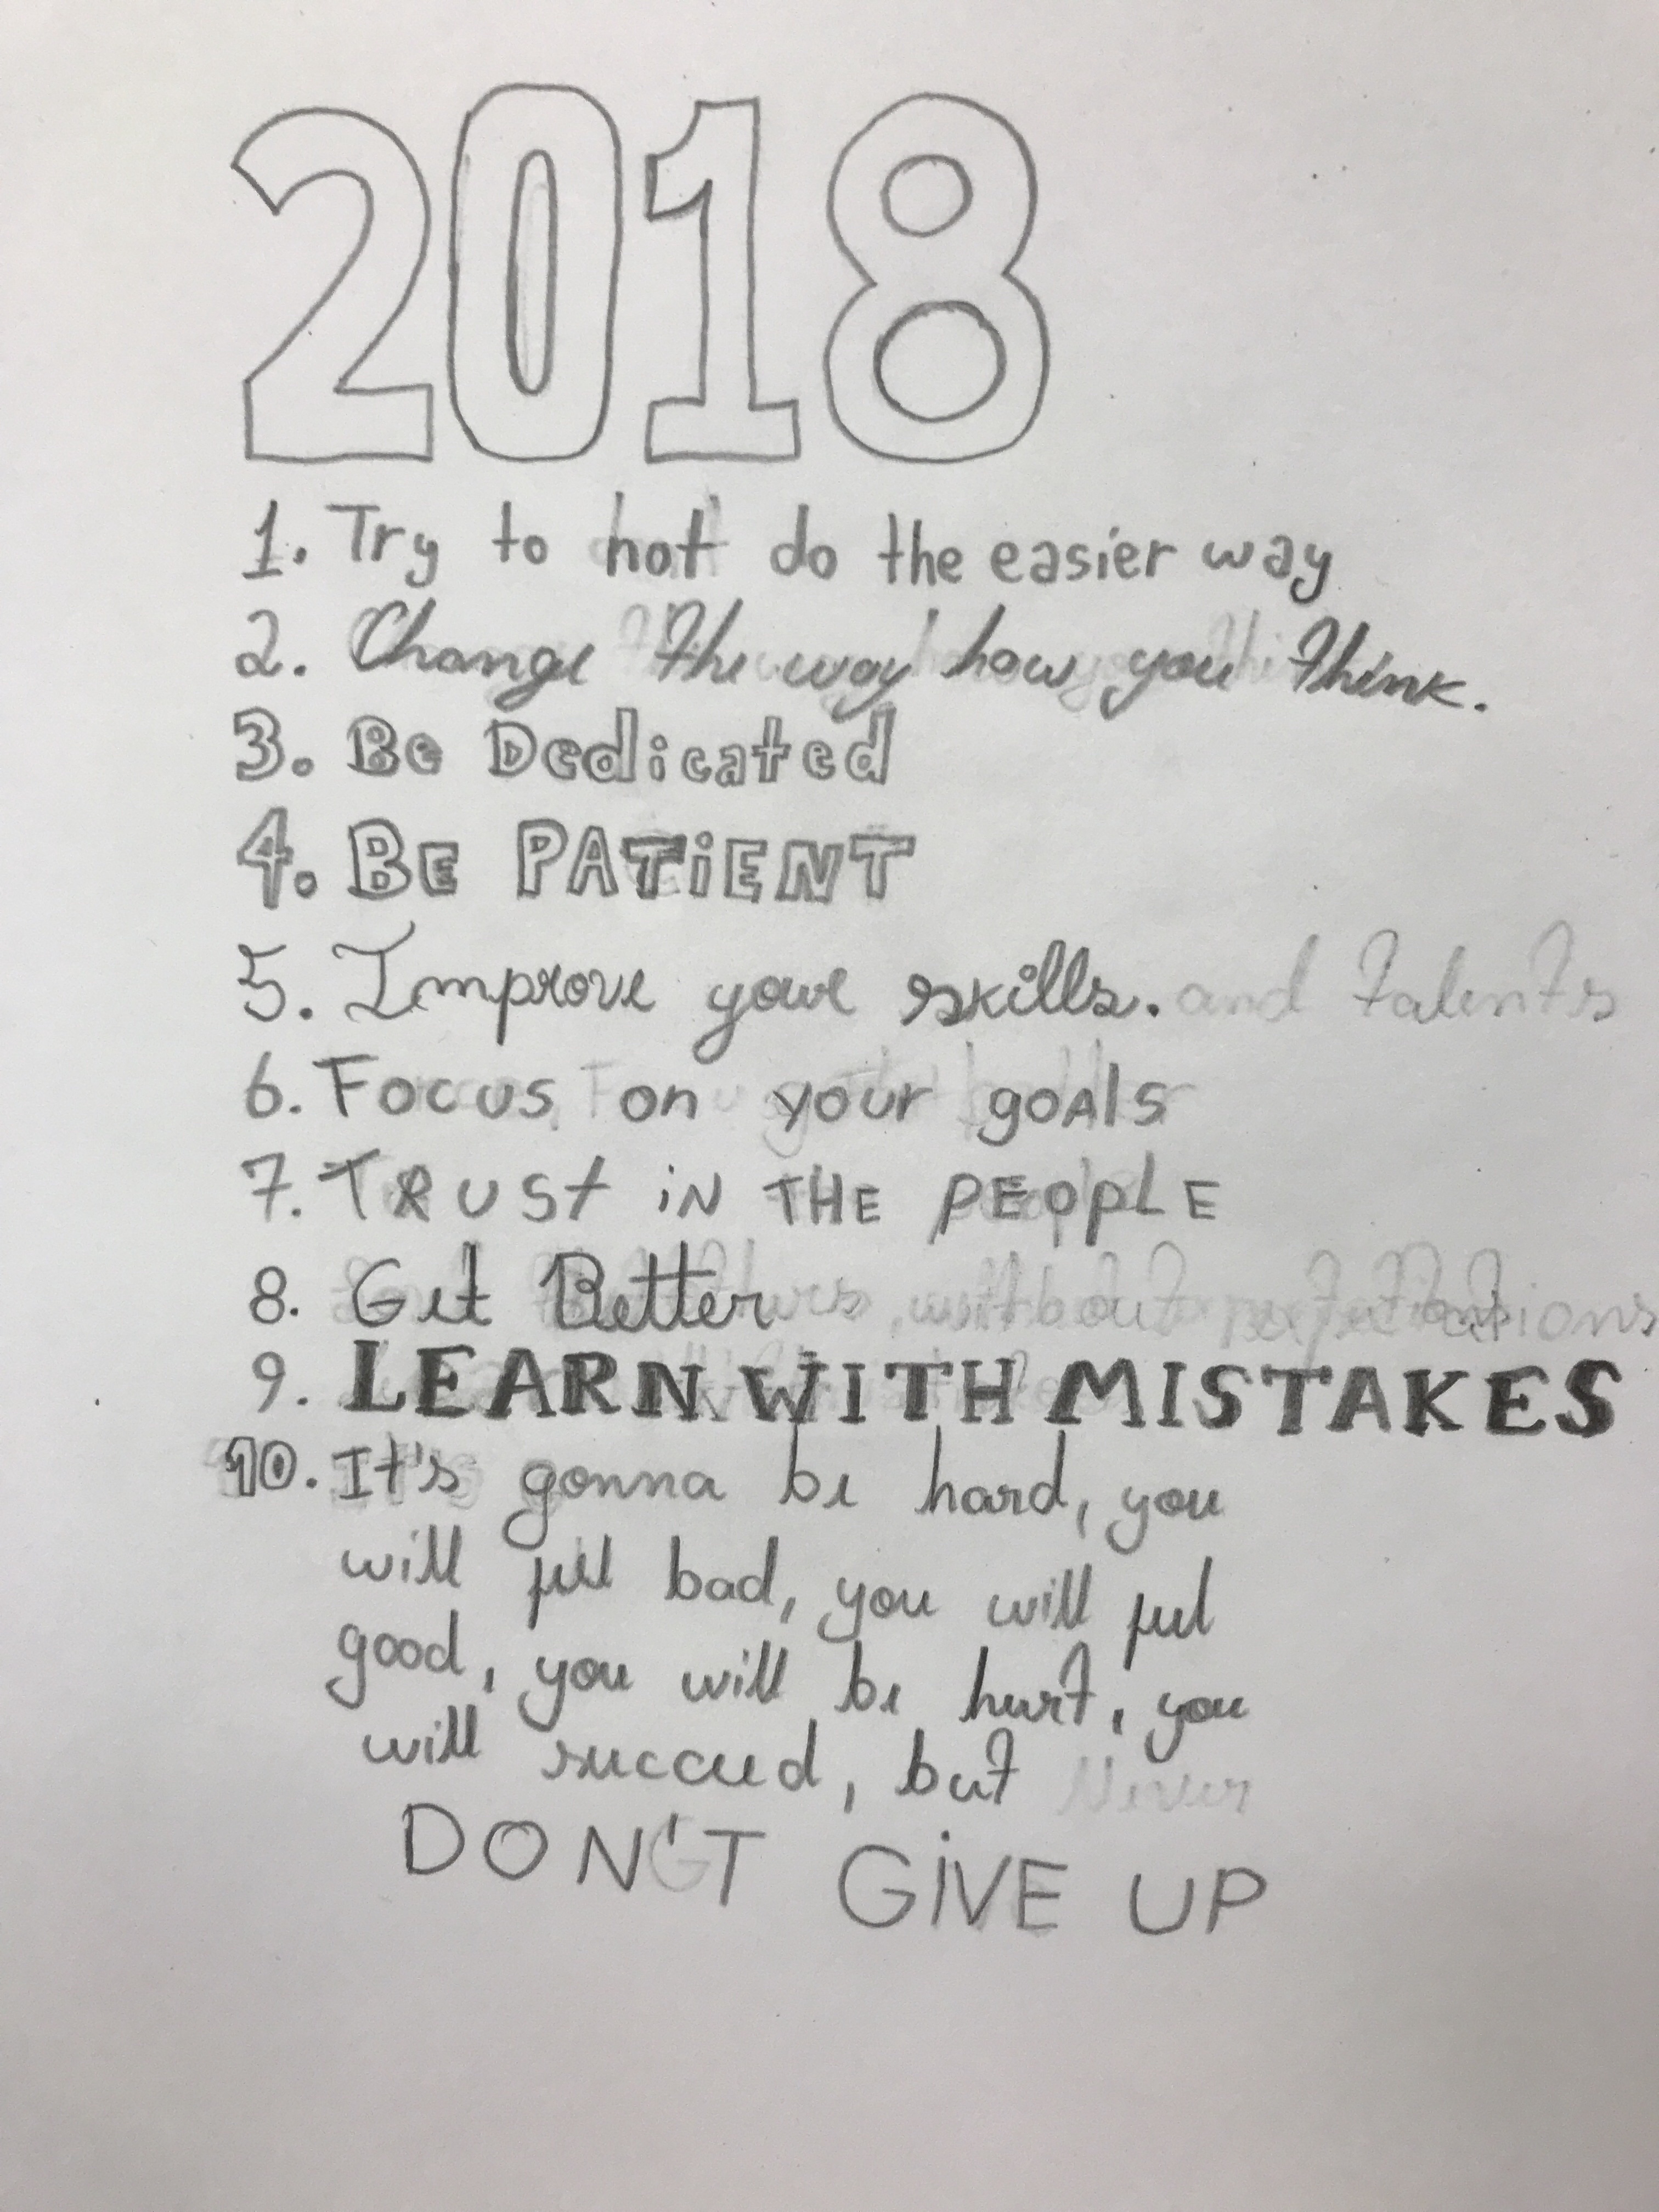 2018
1. Try to not do the easier way
2. Change the way how you think.
3. Be Dedicated
4. BE PATiENT
5. Improve your skills. and talents
6. Focus on your goals
7. TRUSt iN THE PEOpLE
8. Get Better
9. LEARN WITH MISTAKES
10. It's gonna be hard, you
will fell bad, you will feel
good, you will be hurt, you
will succeed, but Never
DON'T GiVE UP